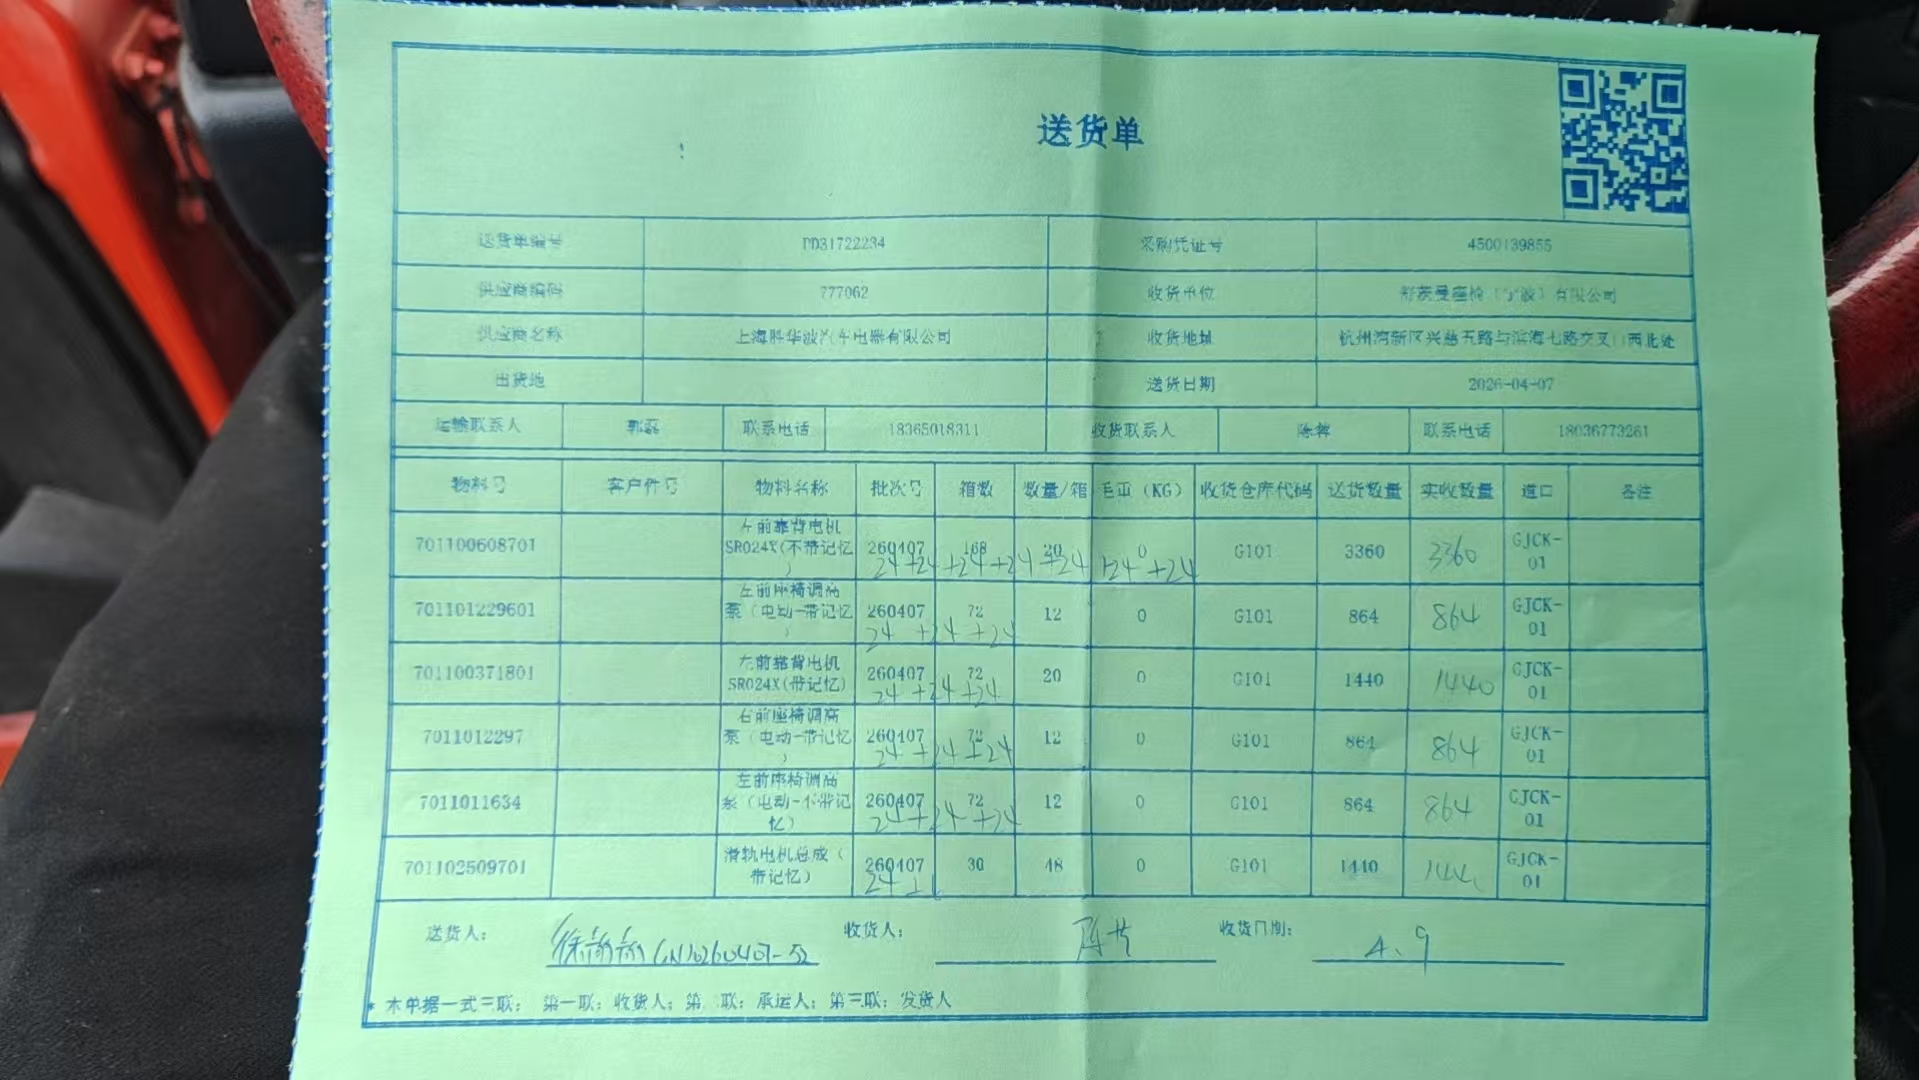 送货单
送货单编号 DD31722234 采购凭证号 4500139855
供应商编码 777062 收货单位 舒茨曼座椅（宁波）有限公司
供应商名称 上海胜华波汽车电器有限公司 收货地址 杭州湾新区兴慈五路与滨海七路交叉口西北处
出货地 送货日期 2026-04-07
运输联系人 郭磊 联系电话 18365018311 收货联系人 陈蓉 联系电话 18036773261
物料号 客户件号 物料名称 批次号 箱数 数量/箱 毛重（KG） 收货仓库代码 送货数量 实收数量 道口 备注
701100608701 前靠背电机SR024X(不带记忆) 260407 168 20 0 G101 3360 3360 GJCK-01
24+24+24+24+24+24+24
701101229601 左前座椅调高泵（电动-带记忆） 260407 72 12 0 G101 864 864 GJCK-01
24+24+24
701100371801 左前靠背电机SR024X(带记忆) 260407 72 20 0 G101 1440 1440 GJCK-01
24+24+24
7011012297 右前座椅调高泵（电动-带记忆） 260407 72 12 0 G101 864 864 GJCK-01
24+24+24
7011011634 左前座椅调高泵（电动-不带记忆） 260407 72 12 0 G101 864 864 GJCK-01
24+24+24
701102509701 滑轨电机总成（带记忆） 260407 30 48 0 G101 1440 GJCK-01
送货人： 收货人： 收货日期： 4.9
* 本单据一式三联； 第一联：收货人；第二联：承运人；第三联：发货人